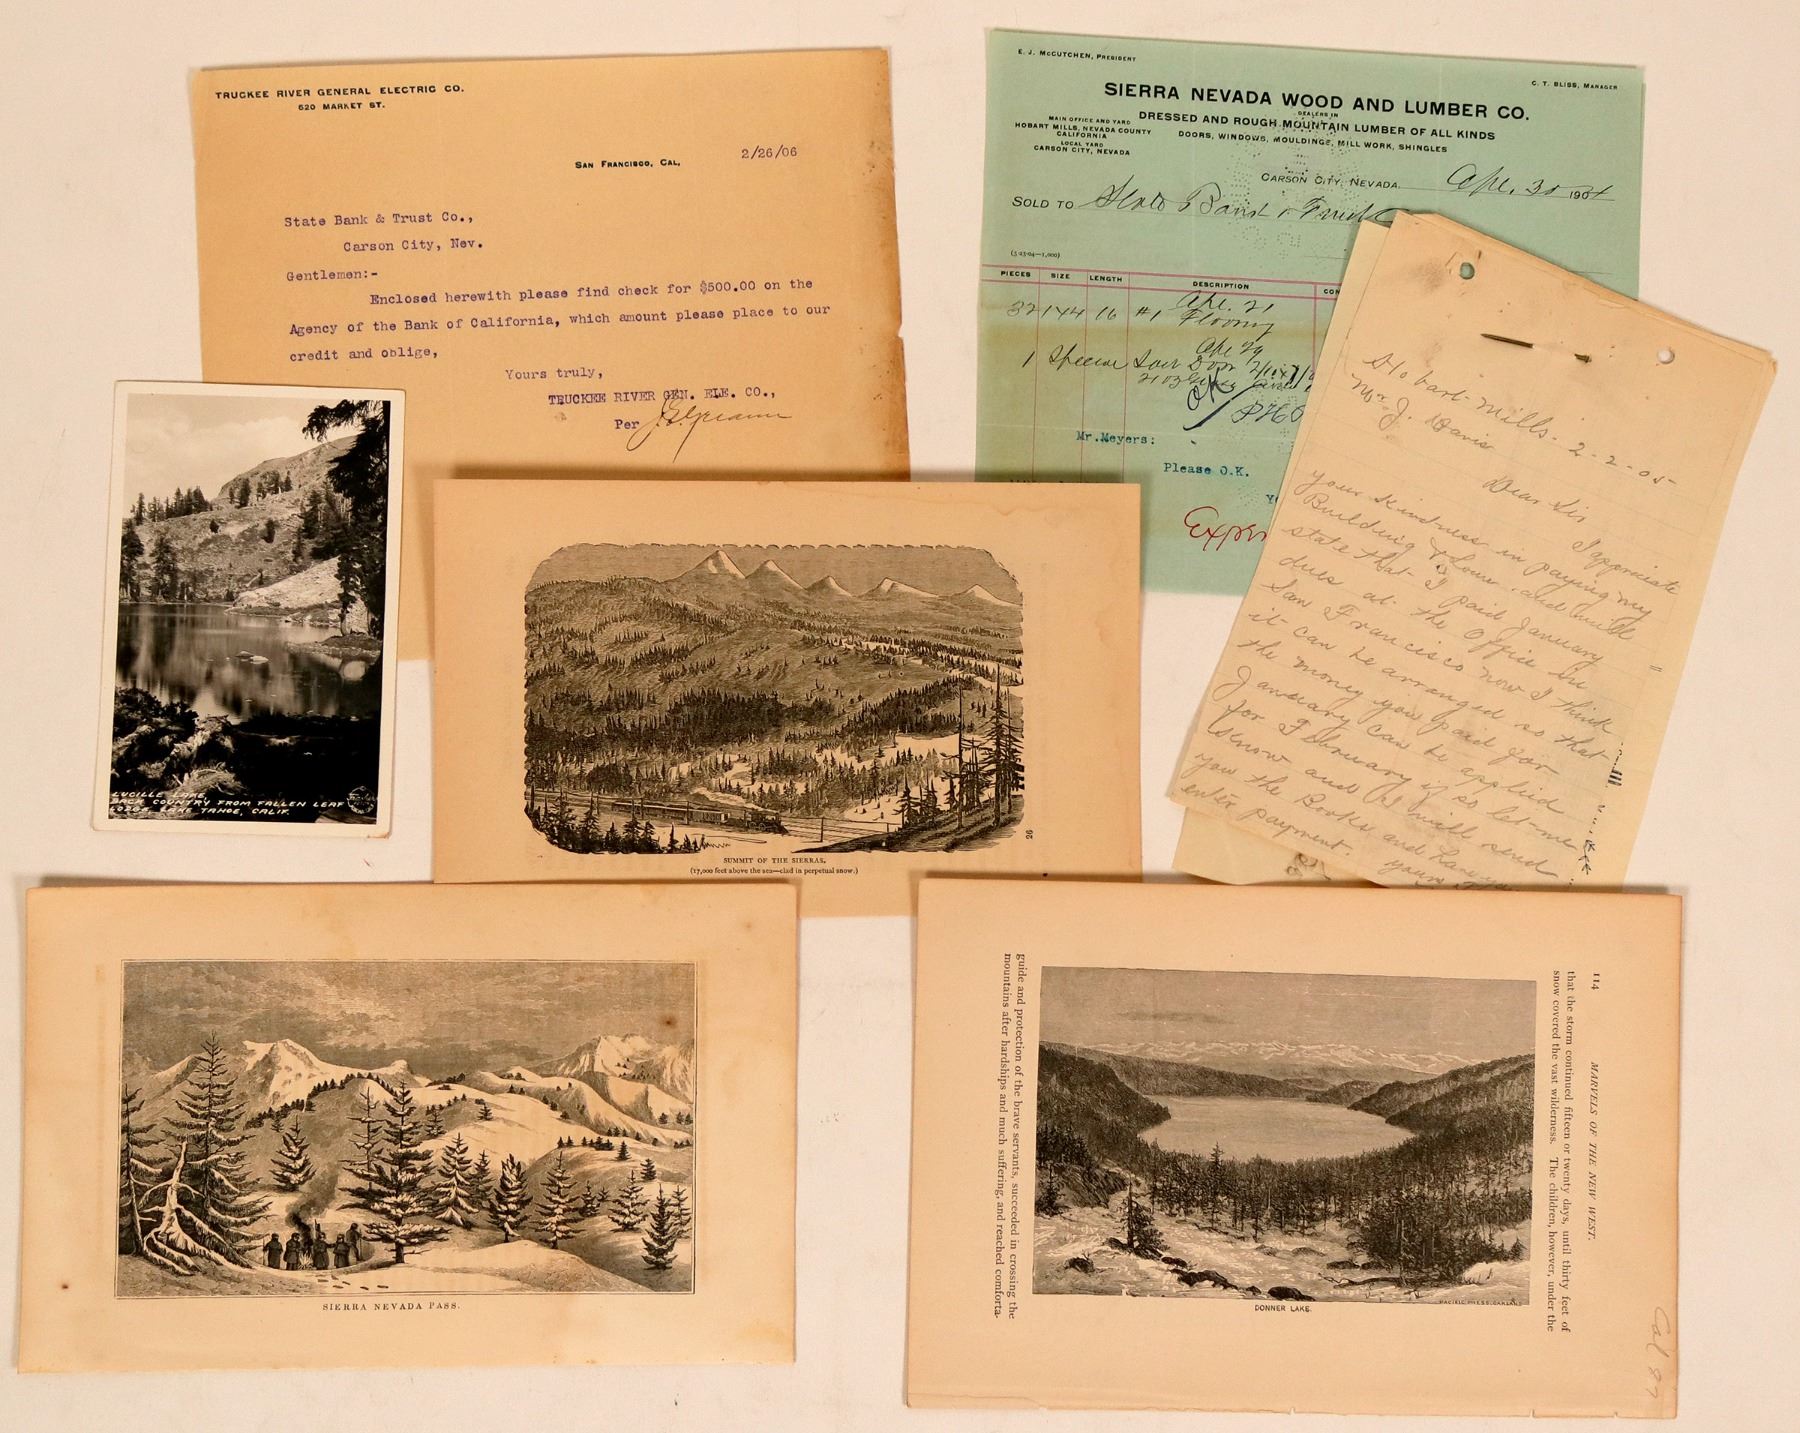 TRUCKEE RIVER GENERAL ELECTRIC CO.
620 MARKET ST.
SAN FRANCISCO, CAL, 2/26/06
State Bank & Trust Co.,
Carson City, Nev.
Gentlemen:-
Enclosed herewith please find check for $500.00 on the
Agency of the Bank of California, which amount please place to our
credit and oblige,
Yours truly,
TRUCKEE RIVER GEN. ELE. CO.,
Per
E. J. McCUTCHEN, PRESIDENT
C. T. BLISS, MANAGER
SIERRA NEVADA WOOD AND LUMBER CO.
DEALERS IN
DRESSED AND ROUGH MOUNTAIN LUMBER OF ALL KINDS
DOORS, WINDOWS, MOULDINGS, MILL WORK, SHINGLES
MAIN OFFICE AND YARD
HOBART MILLS, NEVADA COUNTY
CALIFORNIA
LOCAL YARD
CARSON CITY, NEVADA
CARSON CITY, NEVADA. Apl. 30 1904
SOLD TO State Bank & Trust
(5-23-04—1,000)
PIECES SIZE LENGTH DESCRIPTION CON
Apl. 21
32 1x4 16 #1 Flooring
Apl 29
1 Special Door
OK
Mr. Meyers:
Please O.K.
Expen
Hobart Mills - 2-2-05
Mr J. Davis
Dear Sir
I appreciate
your kindness in paying my
Building & Loan and will
state that I paid January
dues at the Office in
San Francisco now I think
it can be arranged so that
the money you paid for
January can be applied
for February if so let me
know and I will send
you the Books and have you
enter payment.
yours
LUCILLE LAKE,
BACK COUNTRY FROM FALLEN LEAF
LODGE, LAKE TAHOE, CALIF.
SUMMIT OF THE SIERRAS.
(17,000 feet above the sea—clad in perpetual snow.)
26
SIERRA NEVADA PASS.
114 MARVELS OF THE NEW WEST.
that the storm continued fifteen or twenty days, until thirty feet of
snow covered the vast wilderness. The children, however, under the
DONNER LAKE.
PACIFIC PRESS, OAKLAND
guide and protection of the brave servants, succeeded in crossing the
mountains after hardships and much suffering, and reached comforta-
Cal 87